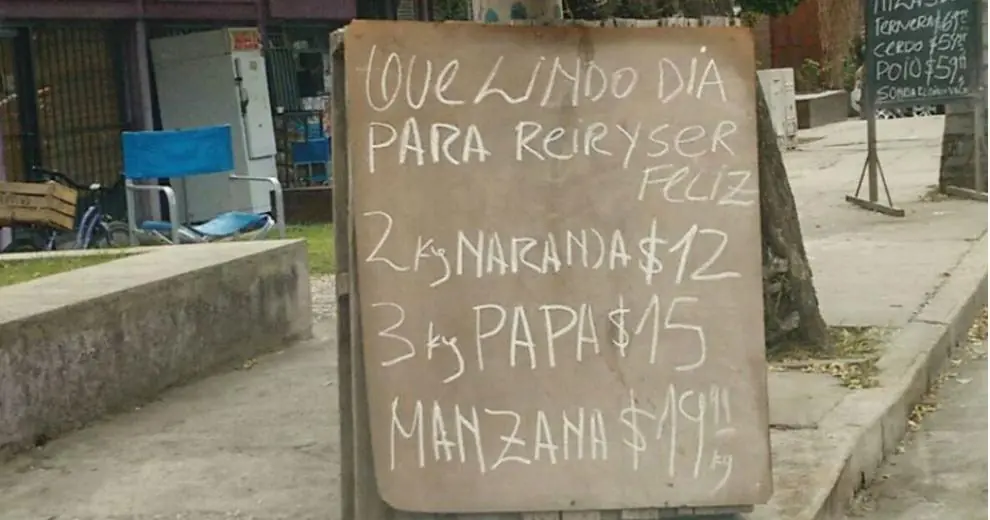 QUE LINDO DIA
PARA REIR Y SER
FELIZ
2 kg NARANJA $12
3 kg PAPA $15
MANZANA $19,99 kg
TERNERA $
CERDO $
POIO $59